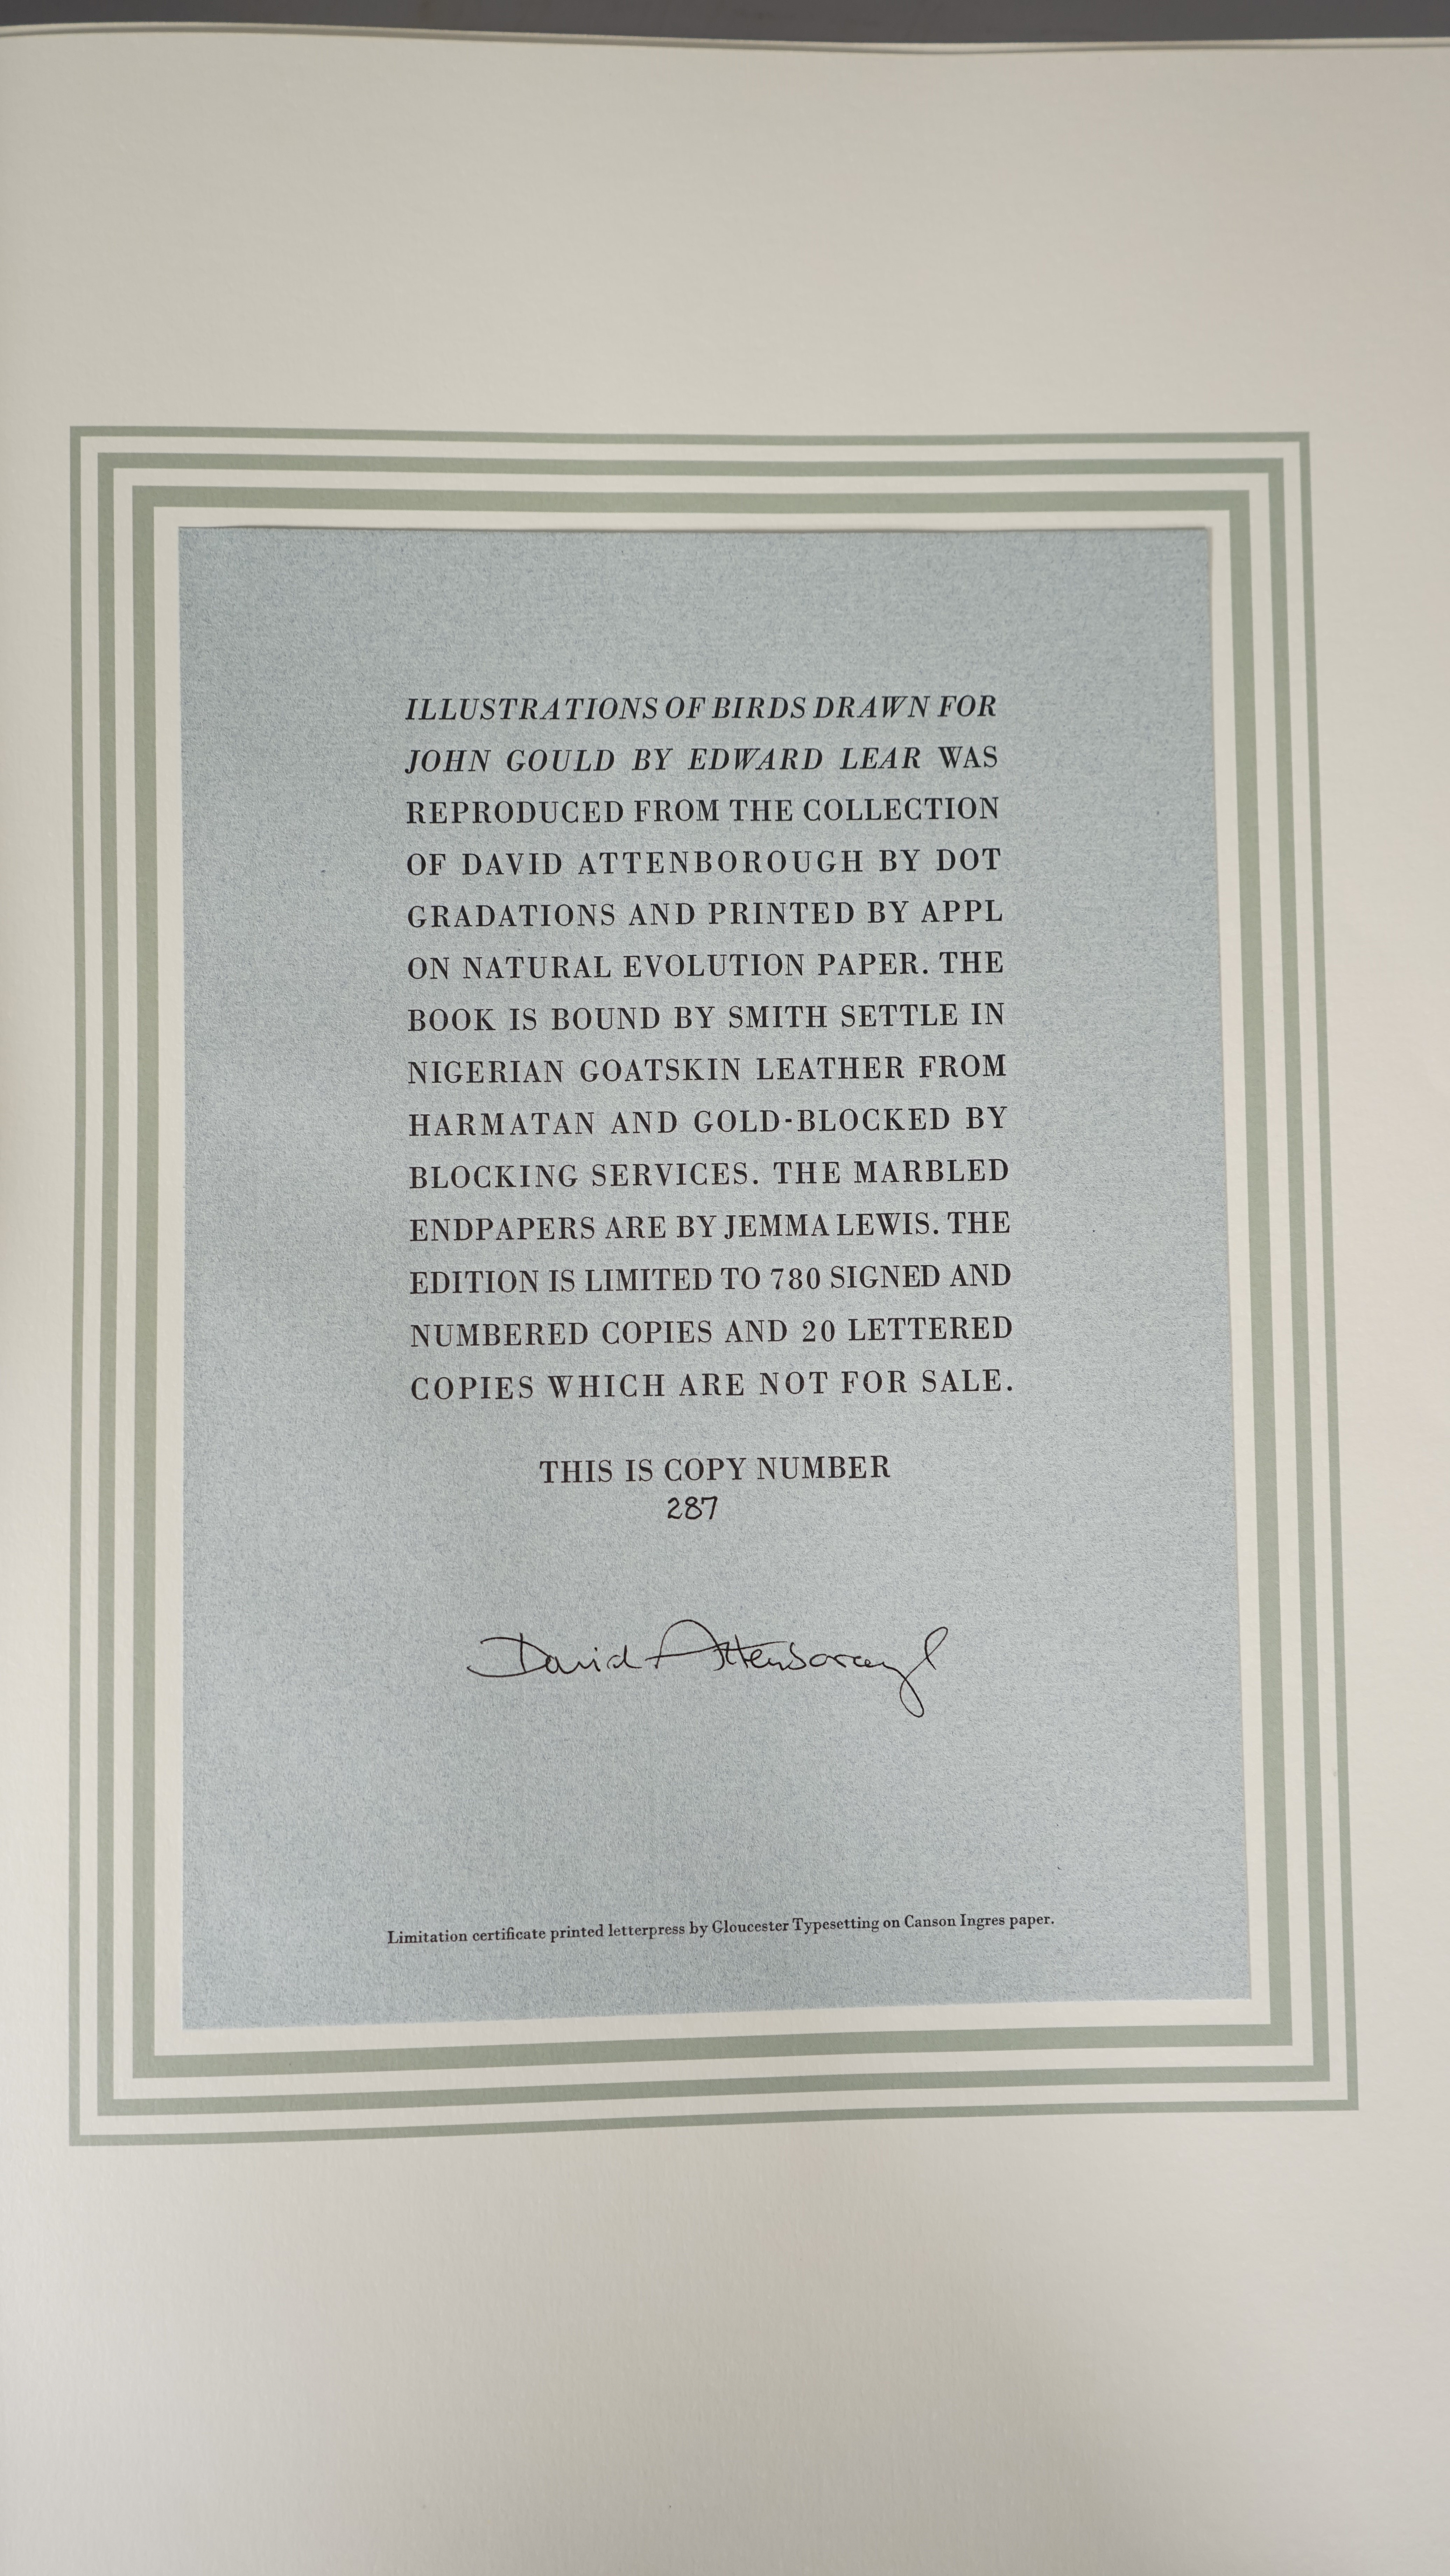 ILLUSTRATIONS OF BIRDS DRAWN FOR
JOHN GOULD BY EDWARD LEAR WAS
REPRODUCED FROM THE COLLECTION
OF DAVID ATTENBOROUGH BY DOT
GRADATIONS AND PRINTED BY APPL
ON NATURAL EVOLUTION PAPER. THE
BOOK IS BOUND BY SMITH SETTLE IN
NIGERIAN GOATSKIN LEATHER FROM
HARMATAN AND GOLD-BLOCKED BY
BLOCKING SERVICES. THE MARBLED
ENDPAPERS ARE BY JEMMA LEWIS. THE
EDITION IS LIMITED TO 780 SIGNED AND
NUMBERED COPIES AND 20 LETTERED
COPIES WHICH ARE NOT FOR SALE.
THIS IS COPY NUMBER
287
David Attenborough
Limitation certificate printed letterpress by Gloucester Typesetting on Canson Ingres paper.